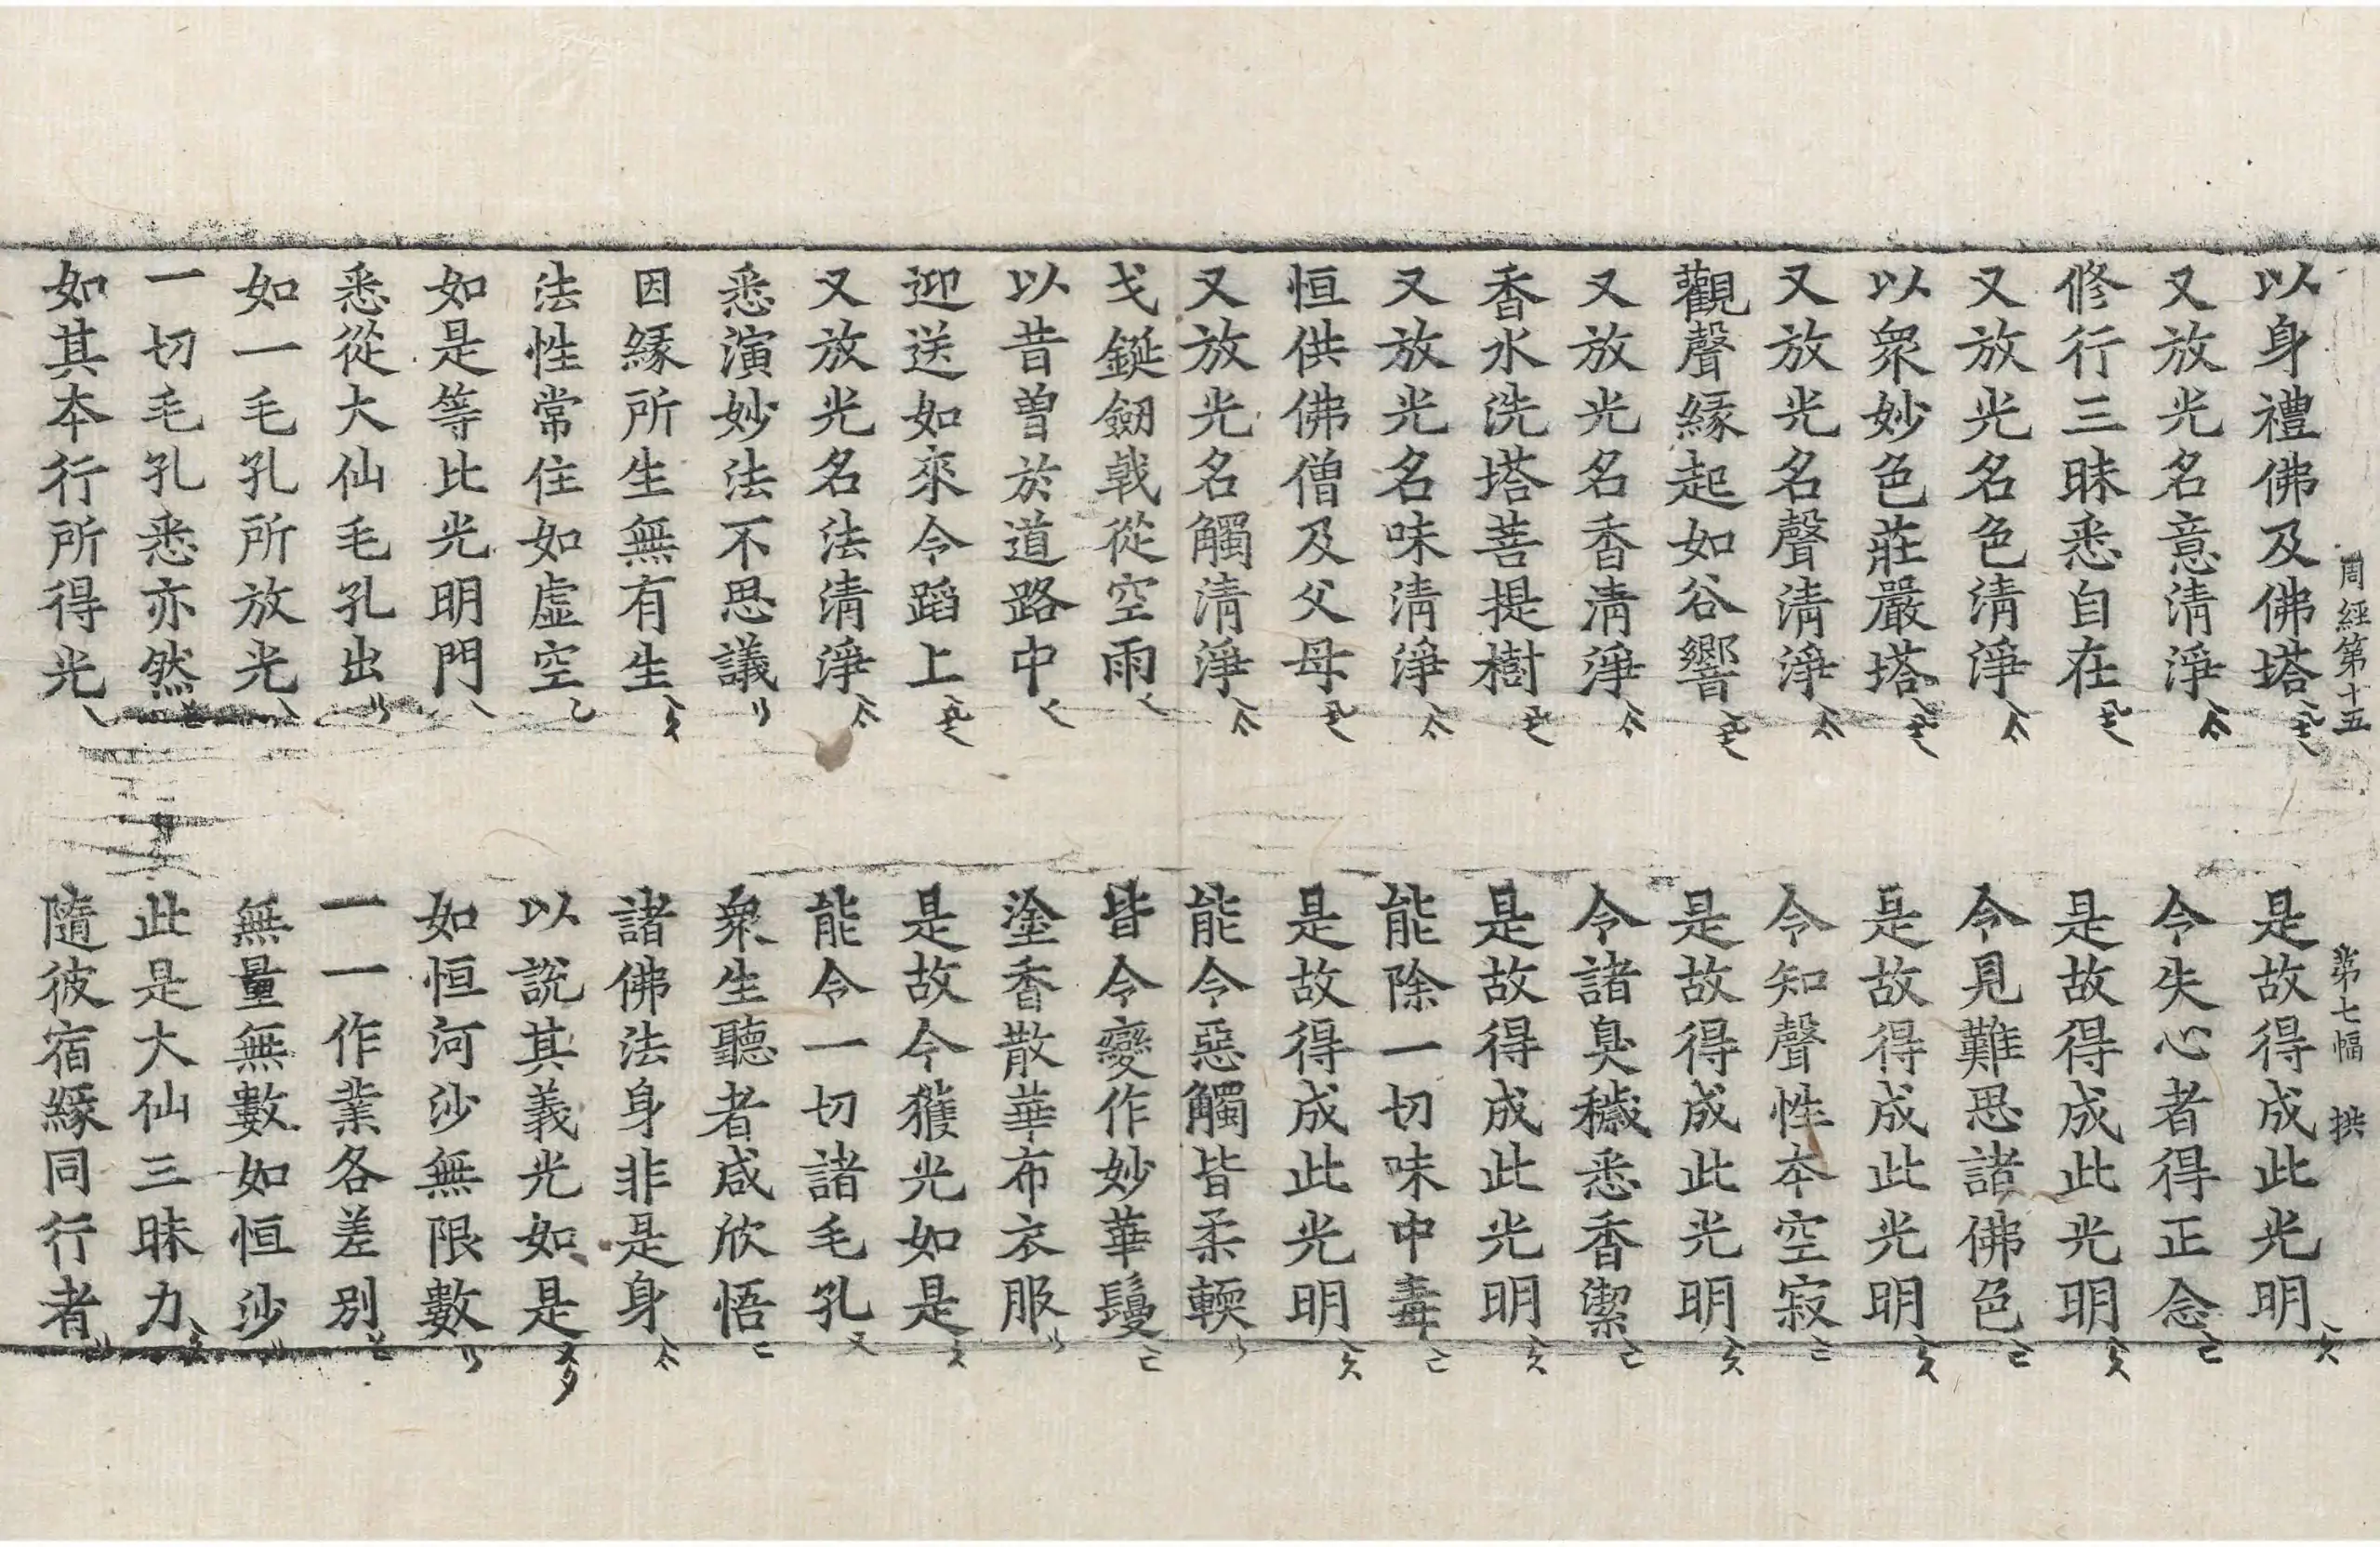 周經第十五 第七幅 拱
以身禮佛及佛塔 是故得成此光明
又放光名意清淨 令失心者得正念
修行三昧悉自在 是故得成此光明
又放光名色清淨 令見難思諸佛色
以衆妙色莊嚴塔 是故得成此光明
又放光名聲清淨 令知聲性本空寂
觀聲緣起如谷響 是故得成此光明
又放光名香清淨 令諸臭穢悉香潔
香水洗塔菩提樹 是故得成此光明
又放光名味清淨 能除一切味中毒
恒供佛僧及父母 是故得成此光明
又放光名觸清淨 能令惡觸皆柔輭
戈鋋劒戟從空雨 皆令變作妙華鬘
以昔曽於道路中 塗香散華布衣服
迎送如來令蹈上 是故今獲光如是
又放光名法清淨 能令一切諸毛孔
悉演妙法不思議 衆生聽者咸欣悟
因緣所生無有生 諸佛法身非是身
法性常住如虛空 以説其義光如是
如是等比光明門 如恒河沙無限數
悉從大仙毛孔出 一一作業各差別
如一毛孔所放光 無量無數如恒沙
一切毛孔悉亦然 此是大仙三昧力
如其本行所得光 隨彼宿緣同行者